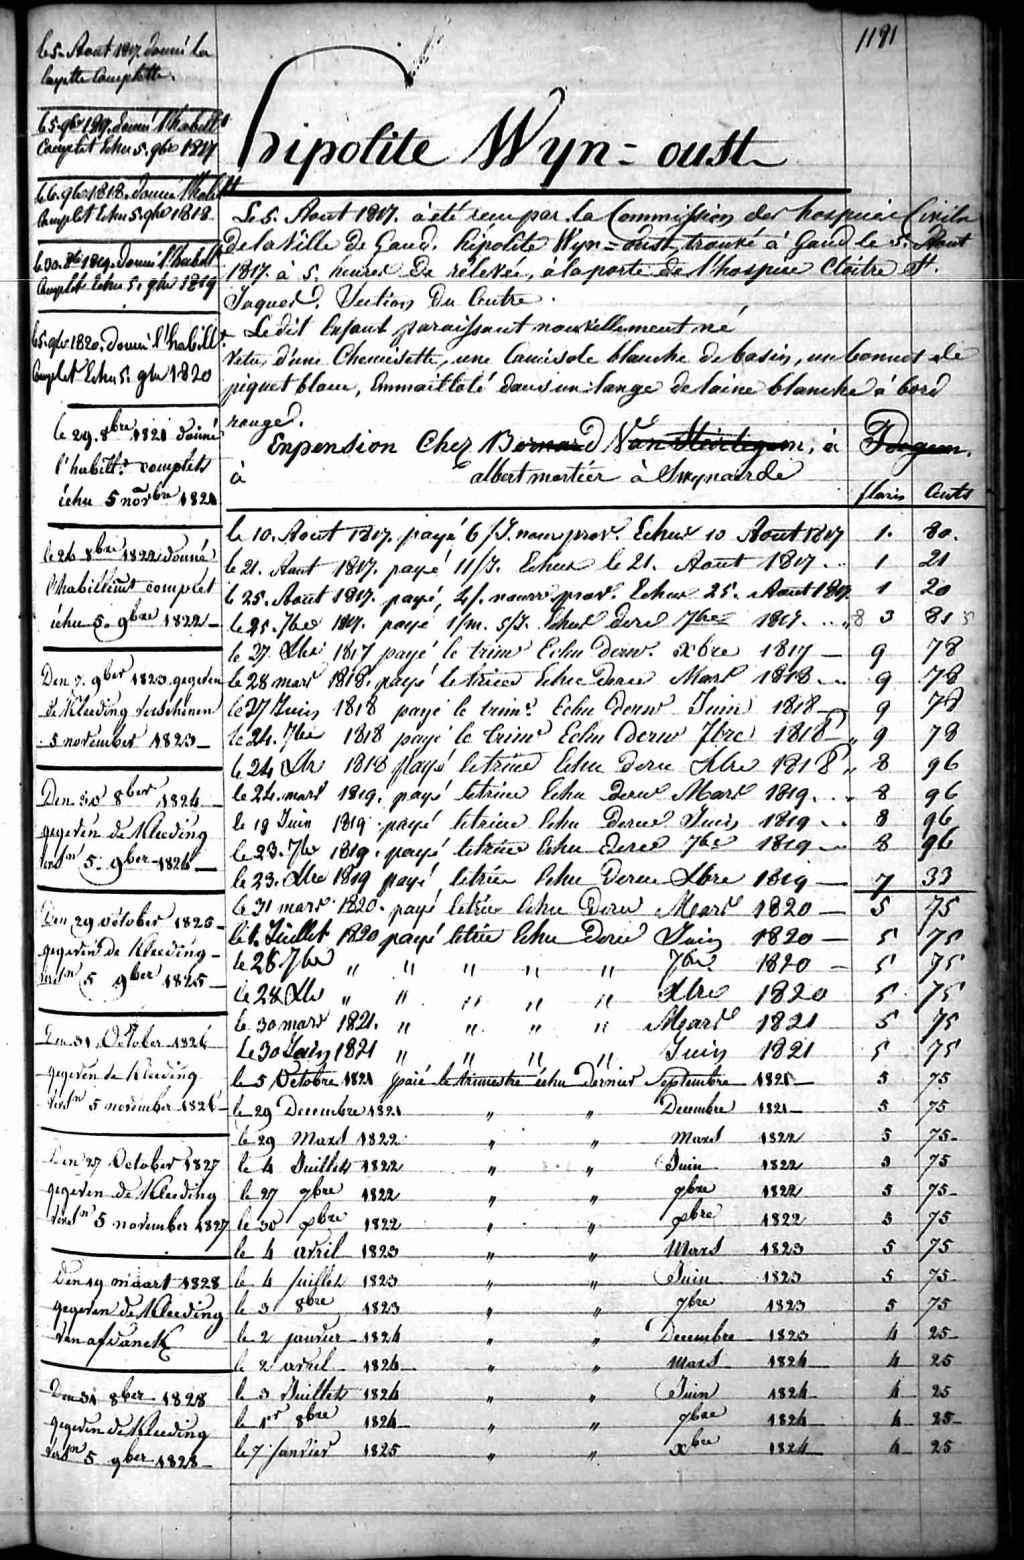 1191
hipolite Wyn = oust
le 5. Aout 1817. donné la
layette Complette.
le 5. 9bre 1817. donné l'habillt
Complet Echu 5. 9bre 1817
le 6. 9bre 1818. donné l'habillt
Complet Echu 5. 9bre 1818
le 30. 8bre 1819. donné l'habillt
Complet Echu 5. 9bre 1819
le 5. 9bre 1820. donné l'habillt
Complet Echu 5. 9bre 1820
le 29. 8bre 1821 donné
l'habillt. complets
échu 5 novbre 1821
le 26 8bre 1822 donné
l'habillemt complet
échu 5. 9bre 1822 —
Den 7. 9ber 1823 gegeven
de Kleeding verschenen
5 november 1823 —
Den 30 8ber 1824 —
gegeven de Kleeding
versn 5. 9ber 1824 —
Den 29 october 1825 —
gegeven de Kleeding —
versn 5 9ber 1825 —
Den 31 October 1826
gegeven de Kleeding
versn 5 november 1826 —
Den 27 October 1827
gegeven de Kleeding
versn 5 november 1827
Den 19 maart 1828
gegeven de Kleeding
van afdanck
Den 31 8ber 1828
gegeven de Kleeding
versn 5 9ber 1828 —
Le 5. Aout 1817. a été recu par la Commission des hospices Civils
de la Ville de Gand, hipolite Wyn = oust, trouvé à Gand le 5. Aout
1817. à 5. heures De relevée, à la porte de l'hospice Cloitre St.
Jaques. Section Du Centre.
Le dit Enfant paraissant nouvellement né
vetu, d'une Chemisette, une Camisole blanche de basin, un bonnet de
piquet blanc, Emmaillolé dans un lange de laine blanche à bord
rouge.
En pension Chez Bernard Van, à
à albert mortier à Swynaerde
floris Cents
le 10. Aout 1817. payé 6/J. nour prov. Echus 10 Aout 1817 1. 80.
le 21. Aout 1817. payé 11/J. Echus le 21. Aout 1817 .. 1 21
le 25. Aout 1817. payé, 4/. nourr prov. Echus 25. Aout 1817. 1 20
le 25. 7bre 1817. payé 1/m. 5/J. Echus dere 7bre 1817. .. 3 81
le 27. Xbre 1817 payé le trimr Echu dernr. xbre 1817 — 9 78
le 28 mars 1818. payé le trime Echu derne Mars 1818 .. 9 78
le 27 Juin 1818 payé le trimr. Echu dernr Juin 1818 — 9 78
le 24. 7bre 1818 payé le trimr Echu dernr 7bre 1818 „ 9 78
le 24 Xbre 1818 payé le trime Echu derne Xbre 1818 „ 8 96
le 24. mars 1819. payé le trime Echu derne Mars 1819. .. 8 96
le 19 Juin 1819 payé le trime Echu derne Juin 1819 .. 8 96
le 23. 7bre 1819. payé le trime Echu derne 7bre 1819 — 8 96
le 23. Xbre 1819 payé le trie Echu Derne Xbre 1819 — 7 33
le 31 mars 1820. payé le trie Echu Derne Mars 1820 — 5 75
le 1. Juillet 1820 payé le trie Echu Derne Juin 1820 — 5 75
le 28 7bre „ „ „ „ „ 7bre 1820 — 5 75
le 28 Xbre „ „ „ „ „ Xbre 1820 5 75
le 30 mars 1821. „ „ „ „ Mars 1821 5 75
Le 30 Juin 1821 „ „ „ „ Juin 1821 5 75
le 5 Octobre 1821 paié le trimestre échu dernier Septembre 1821 — 5 75
le 29 Decembre 1821 „ „ Decembre 1821 — 5 75
le 29 Mars 1822 „ „ Mars 1822 5 75 —
le 4 Juillet 1822 „ „ Juin 1822 5 75
le 27 7bre 1822 „ „ 7bre 1822 5 75 —
le 30 xbre 1822 „ „ xbre 1822 5 75
le 4 avril 1823 „ „ Mars 1823 5 75
le 4 juillet 1823 „ „ Juin 1823 5 75 —
le 3 8bre 1823 „ „ 7bre 1823 5 75
le 2 janvier 1824 „ „ Decembre 1823 4 25 —
le 2 avril 1824 „ „ Mars 1824 — 4 25
le 3 Juillet 1824 „ „ Juin 1824 4 25
le 1er 8bre 1824 „ „ 7bre 1824 — 4 25 —
le 7 janvier 1825 „ „ xbre 1824 4 25